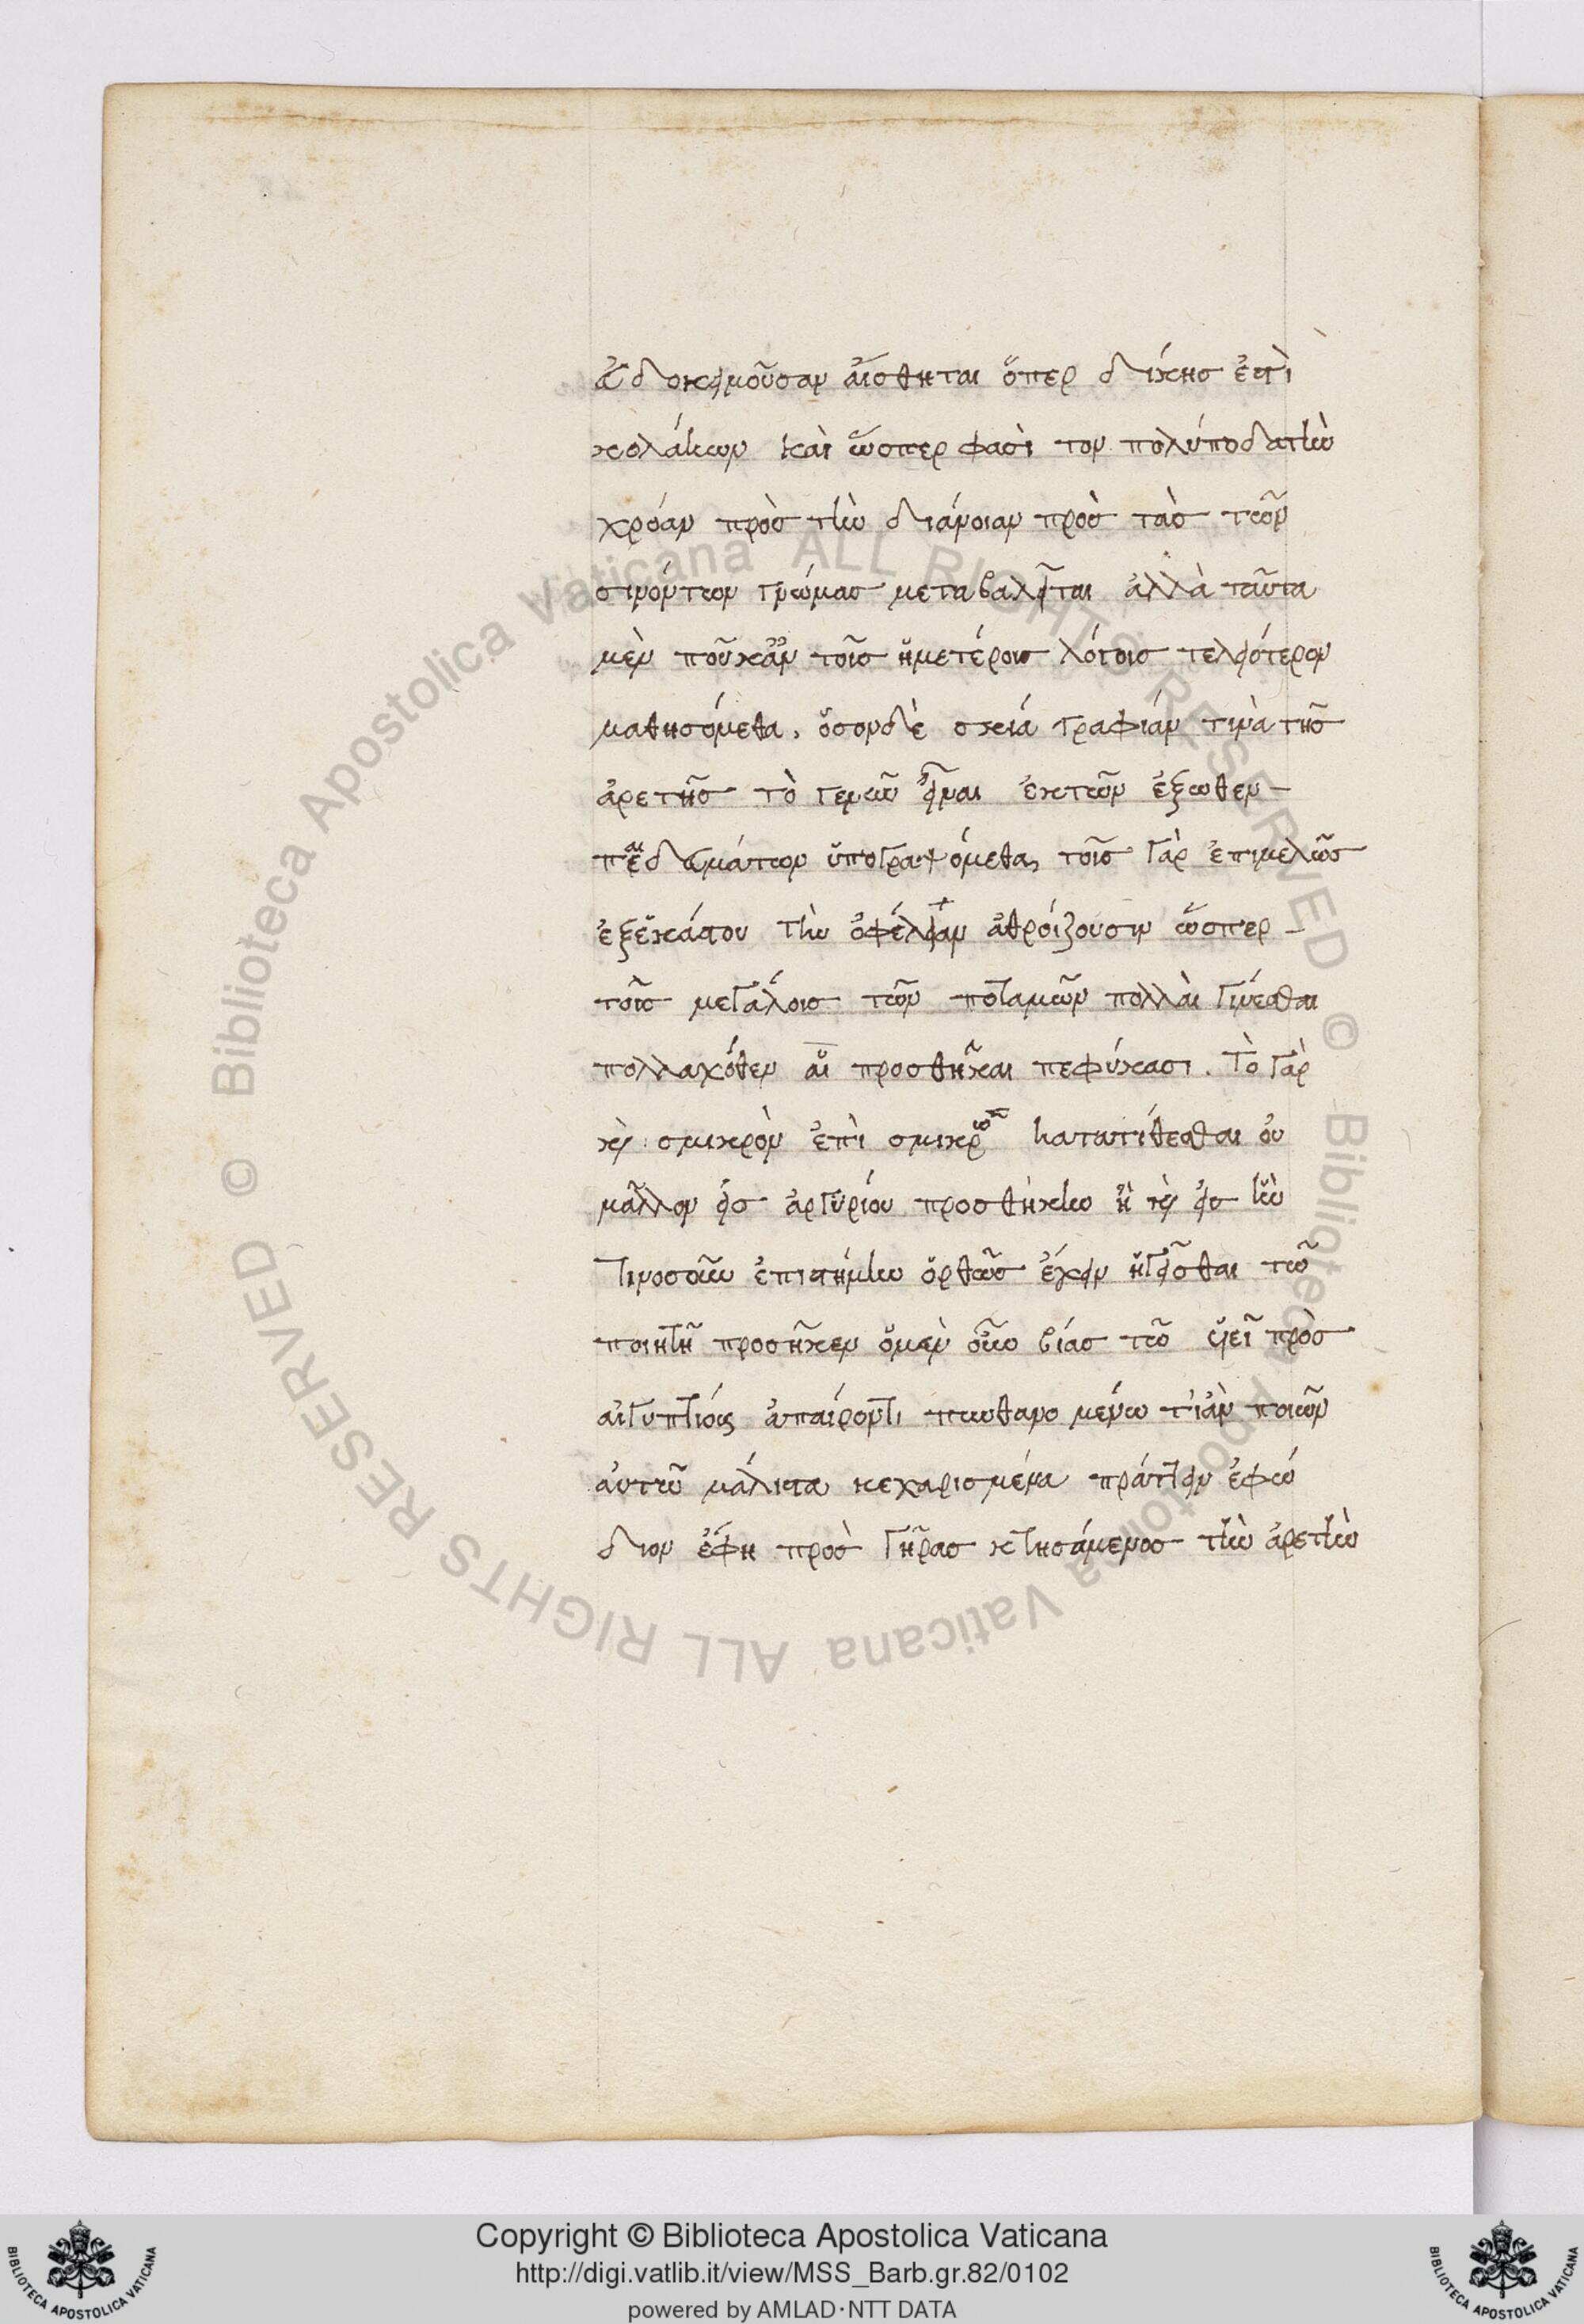 εὐδοκιμοῦσαν αἴσθηται ὅπερ δίκης ἐπὶ
κολάκων καὶ ὥσπερ φασὶ τον πολύποδα τὴν
χρόαν πρὸς τὴν διάνοιαν πρὸς τὰς τῶν
συνόντων γνώμας μεταβαλεῖται ἀλλὰ ταῦτα
μὲν που κἀν τοῖς ἡμετέροις λόγοις τελειότερον
μαθησόμεθα, ὅσον δὲ σκιά γραφίαν τινὰ τῆς
ἀρετῆς τὸ εἶναι ἐκ τῶν ἐξωθεν
παιδευμάτων ὑπογραψόμεθα, τοῖς γὰρ ἐπιμελῶς
ἐξ ἑκάστου τὴν ὀφέλειαν ἀθροίζουσιν ὥσπερ
τοῖς μεγάλοις τῶν ποταμῶν πολλαὶ γινέσθαι
πολλαχόθεν αἱ προσθῆκαι πεφύκασι. Τὸ γὰρ
καὶ σμικρὸν ἐπὶ σμικρῶ κατατίθεσθαι οὐ
μᾶλλον εἰς ἀργυρίου προσθήκην ἢ καὶ εἰς ἣν
τινοσοῦν ἐπιστήμην ὀρθῶς ἔχειν ἡγεῖσθαι τῶ
ποιητῆ προσῆκεν ὁ μὲν οὖν βίας τῶ υἱεῖ πρὸς
αἰγυπτίους ἀπαίροντι πυνθανομένω τί ἂν ποιῶν
αὐτῶ μάλιστα κεχαρισμένα πράττειν ἐφώ
διον ἔφη πρὸς γῆρας κτησάμενος τὴν ἀρετὴν
Copyright © Biblioteca Apostolica Vaticana
http://digi.vatlib.it/view/MSS_Barb.gr.82/0102
powered by AMLAD·NTT DATA
BIBLIOTECA APOSTOLICA VATICANA
BIBLIOTECA APOSTOLICA VATICANA
© Biblioteca Apostolica Vaticana ALL RIGHTS RESERVED
© Biblioteca Apostolica Vaticana ALL RIGHTS RESERVED